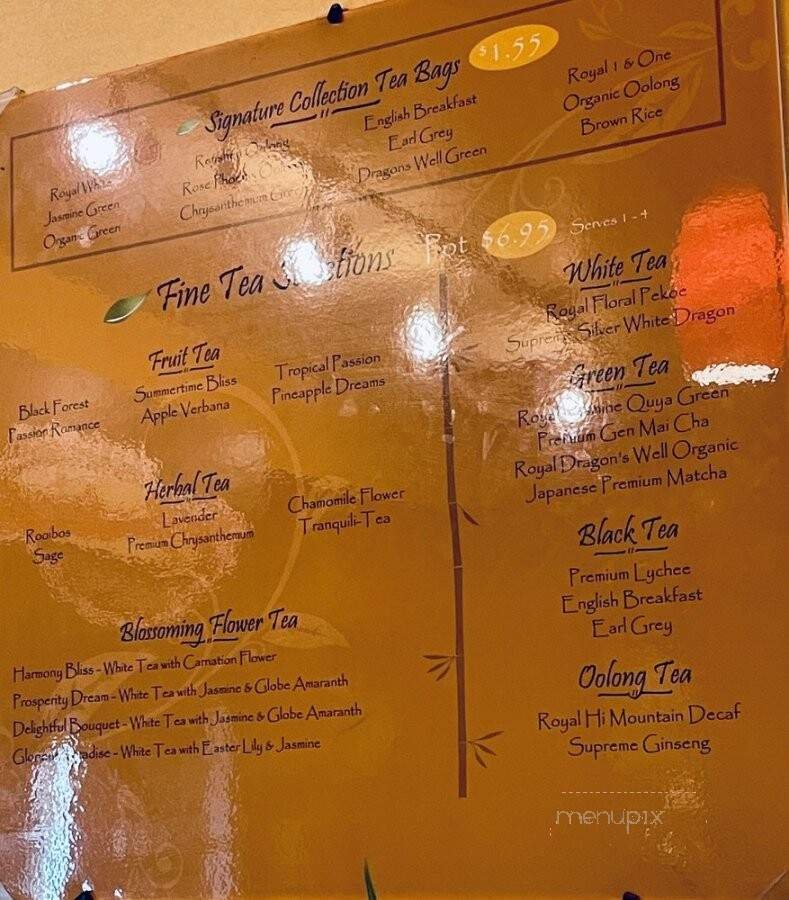 Signature Collection Tea Bags $1.55
Royal White
Jasmine Green
Organic Green
Oolong
Rose Phoenix
Chrysanthemum Green
English Breakfast
Earl Grey
Dragons Well Green
Royal 1 & One
Organic Oolong
Brown Rice
Fine Tea Selections Pot $6.95 Serves 1-4
Fruit Tea
Black Forest
Passion Romance
Summertime Bliss
Apple Verbana
Tropical Passion
Pineapple Dreams
Herbal Tea
Rooibos
Sage
Lavender
Premium Chrysanthemum
Chamomile Flower
Tranquili-Tea
Blossoming Flower Tea
Harmony Bliss - White Tea with Carnation Flower
Prosperity Dream - White Tea with Jasmine & Globe Amaranth
Delightful Bouquet - White Tea with Jasmine & Globe Amaranth
- White Tea with Easter Lily & Jasmine
White Tea
Royal Floral Pekoe
Supreme Silver White Dragon
Green Tea
Royal Jasmine Quya Green
Premium Gen Mai Cha
Royal Dragon's Well Organic
Japanese Premium Matcha
Black Tea
Premium Lychee
English Breakfast
Earl Grey
Oolong Tea
Royal Hi Mountain Decaf
Supreme Ginseng
menupix